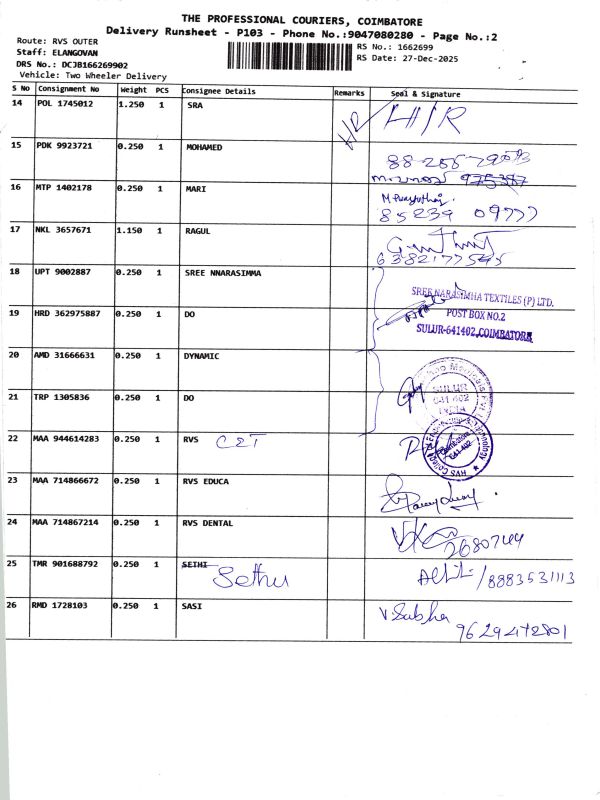 THE PROFESSIONAL COURIERS, COIMBATORE
Delivery Runsheet - P103 - Phone No.:9047080280 - Page No.:2
Route: RVS OUTER
Staff: ELANGOVAN
DRS No.: DCJB166269902
Vehicle: Two Wheeler Delivery
RS No.: 1662699
RS Date: 27-Dec-2025
S No Consignment No Weight PCS Consignee Details Remarks Seal & Signature
14 POL 1745012 1.250 1 SRA H/R H/R
15 PDK 9923721 0.250 1 MOHAMED
16 MTP 1402178 0.250 1 MARI
85239 09777
17 NKL 3657671 1.150 1 RAGUL
6382177545
18 UPT 9002887 0.250 1 SREE NNARASIMMA
SREE NARASIMHA TEXTILES (P) LTD.
19 HRD 362975887 0.250 1 DO
POST BOX NO.2
SULUR-641402, COIMBATORE
20 AMD 31666631 0.250 1 DYNAMIC
SULUR
641 402
INDIA
21 TRP 1305836 0.250 1 DO
22 MAA 944614283 0.250 1 RVS CET
23 MAA 714866672 0.250 1 RVS EDUCA
24 MAA 714867214 0.250 1 RVS DENTAL
25 TMR 901688792 0.250 1 SETHI Sethu
/8883531113
26 RMD 1728103 0.250 1 SASI V. Subha
9629472801